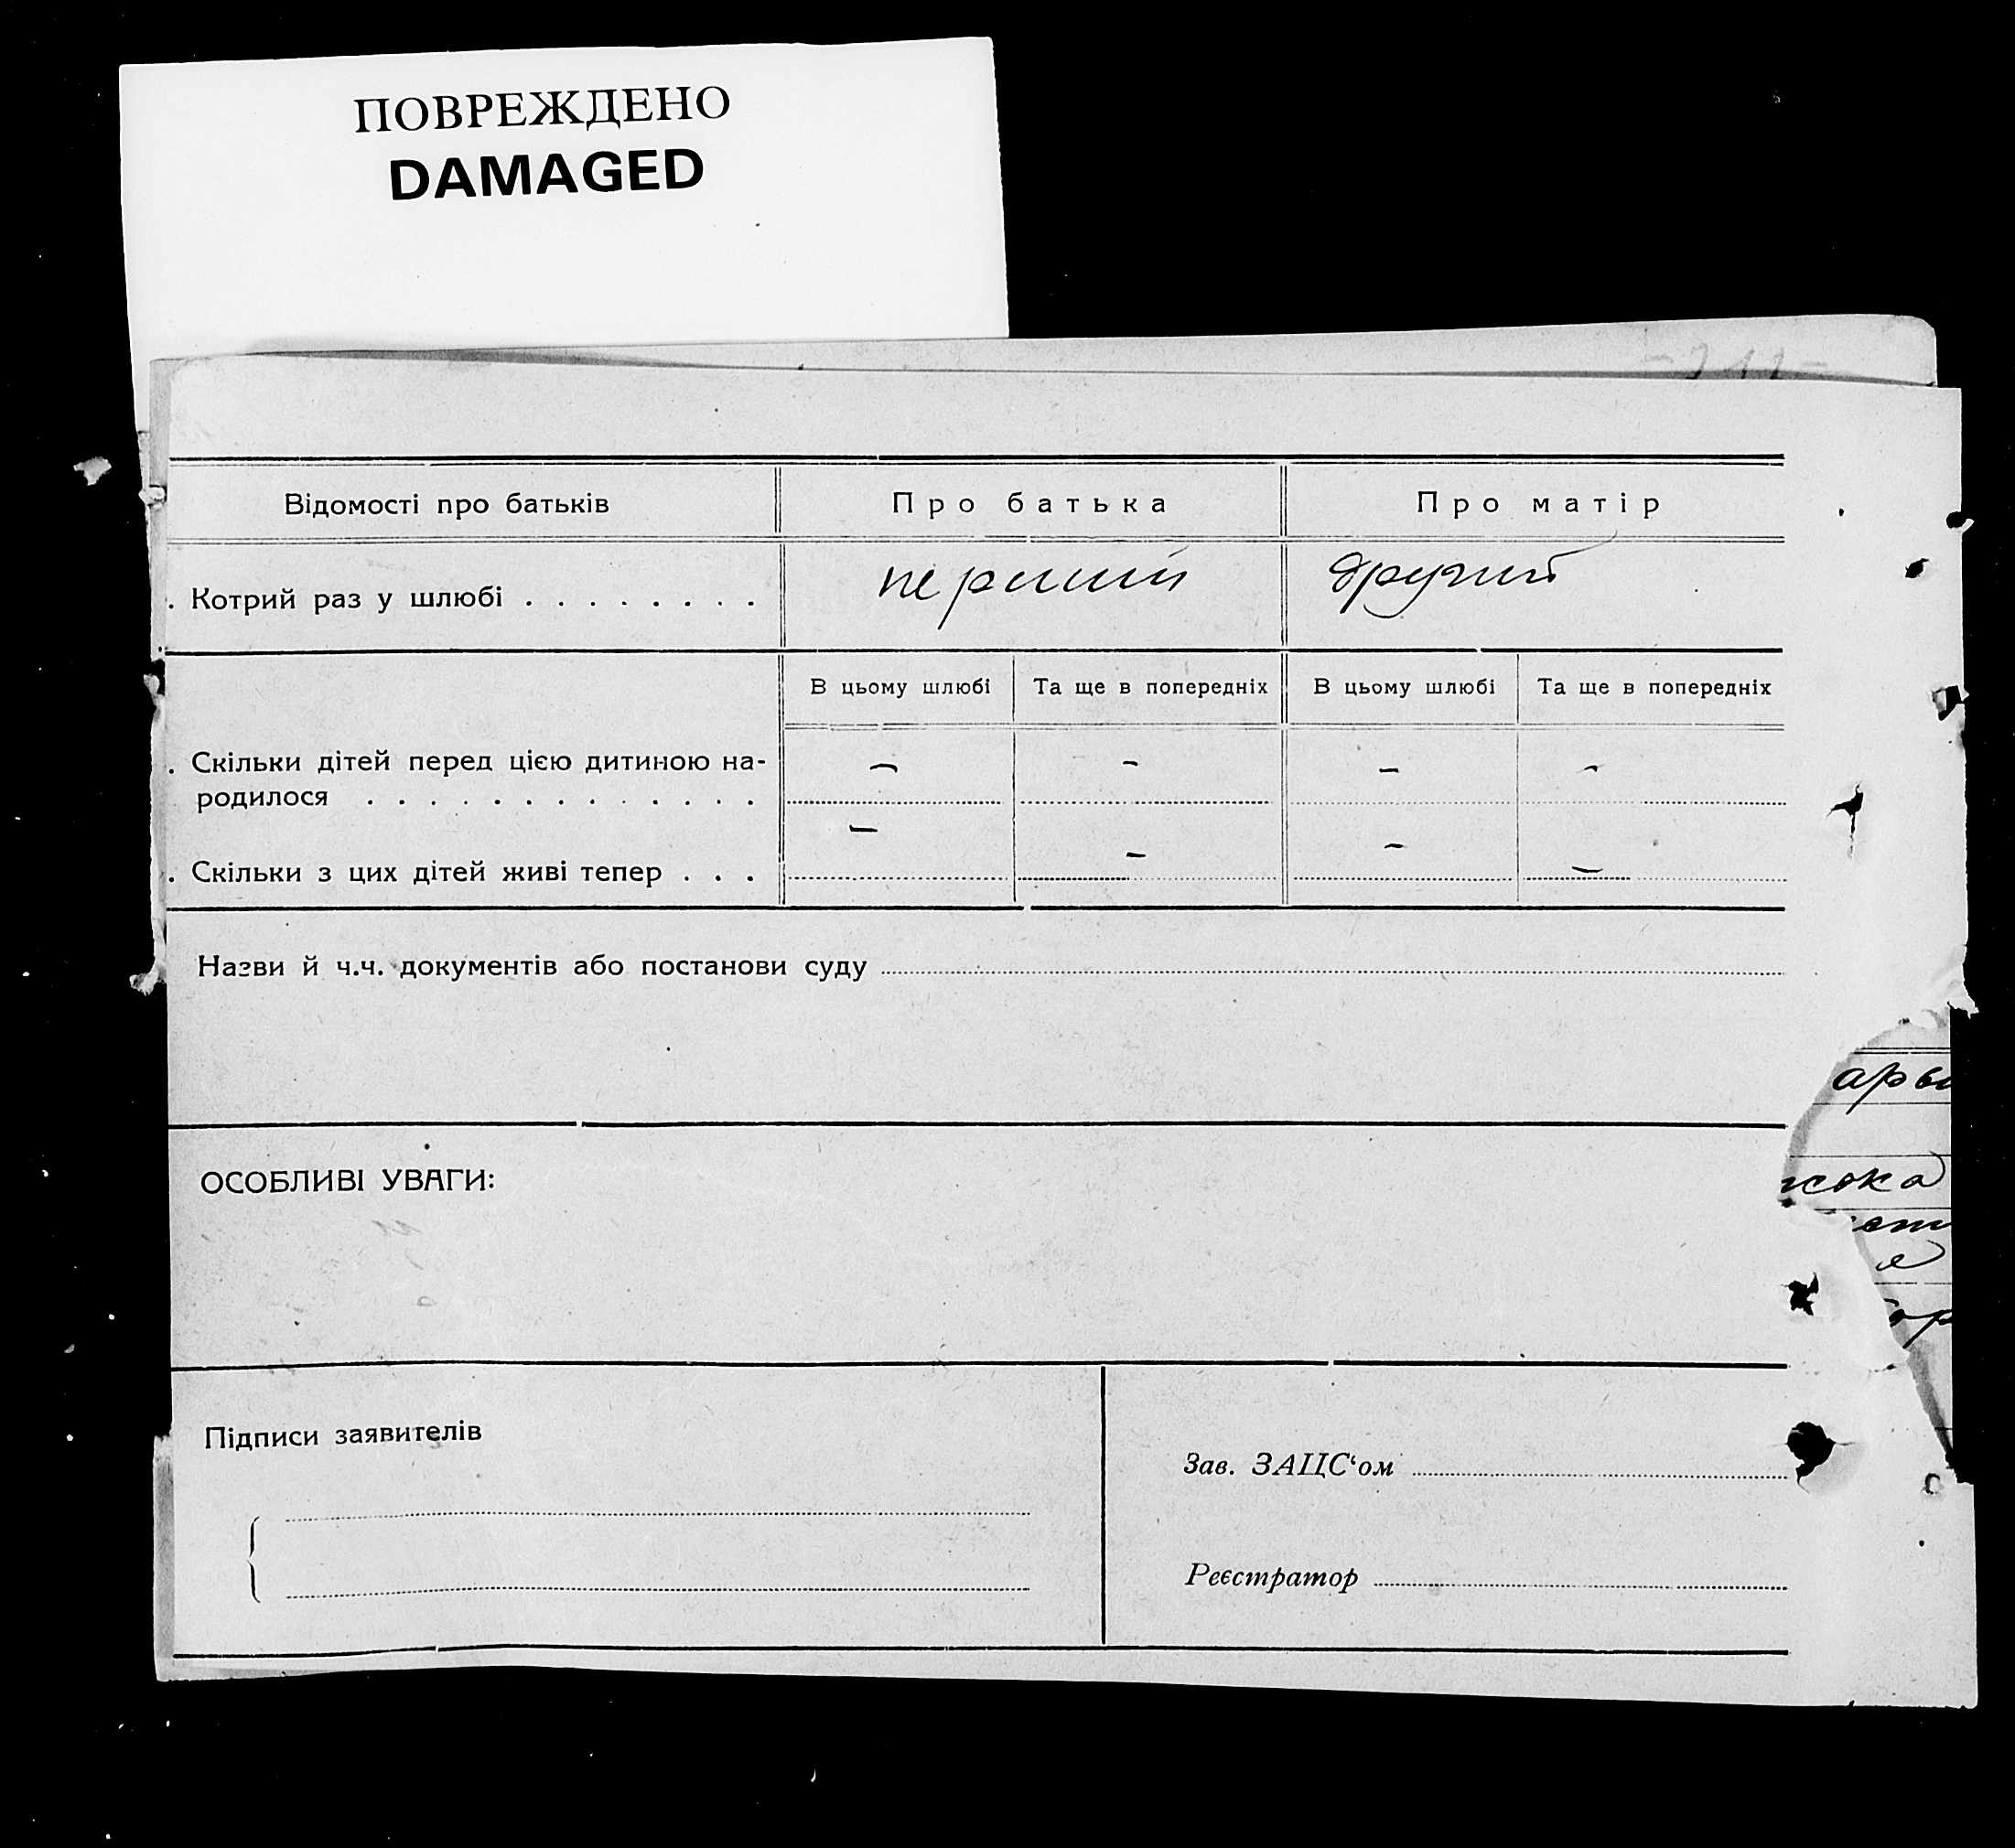 ПОВРЕЖДЕНО
DAMAGED
Відомості про батьків Про батька Про матір
. Котрий раз у шлюбі . . . . . . . . перший другий
В цьому шлюбі Та ще в попередніх В цьому шлюбі Та ще в попередніх
. Скільки дітей перед цією дитиною на- – – – –
родилося . . . . . . . . . . . . . .
. Скільки з цих дітей живі тепер . . . – – – –
Назви й ч.ч. документів або постанови суду
ОСОБЛИВІ УВАГИ:
Підписи заявителів
Зав. ЗАЦС‘ом
Реєстратор